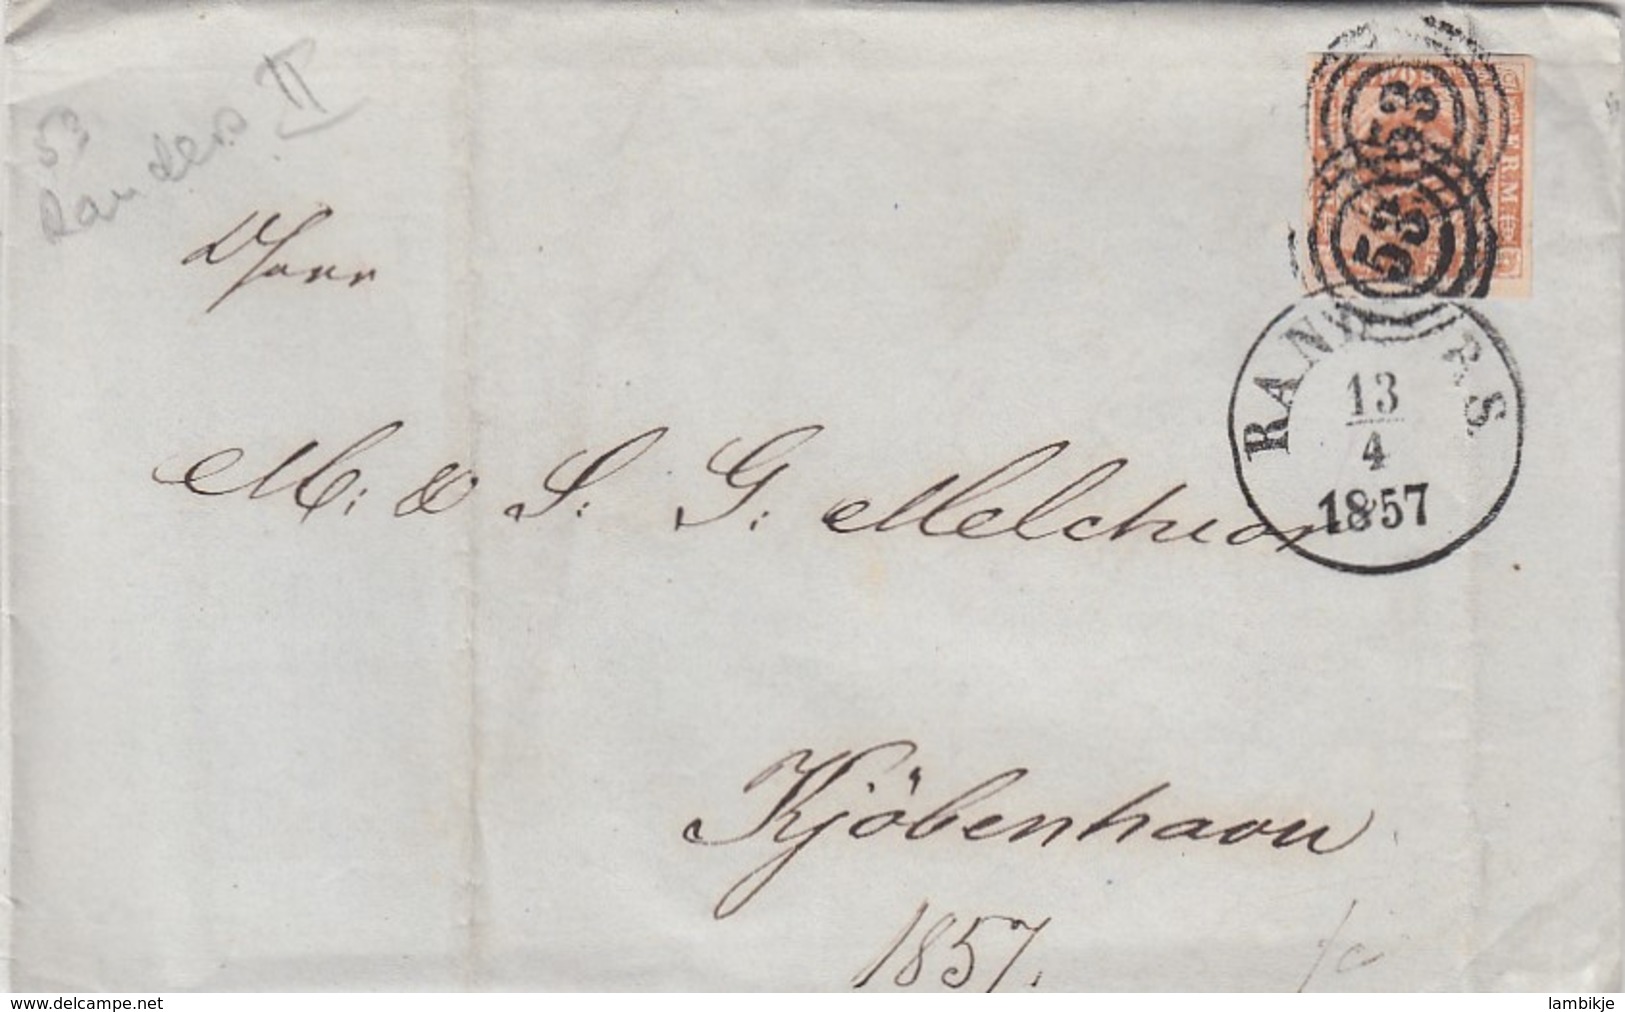 53
Randers II
53
53
F R M
RANDERS
13
4
1857
M: & S: G: Melchior
Kjöbenhavn
1857.
www.delcampe.net
lambikje